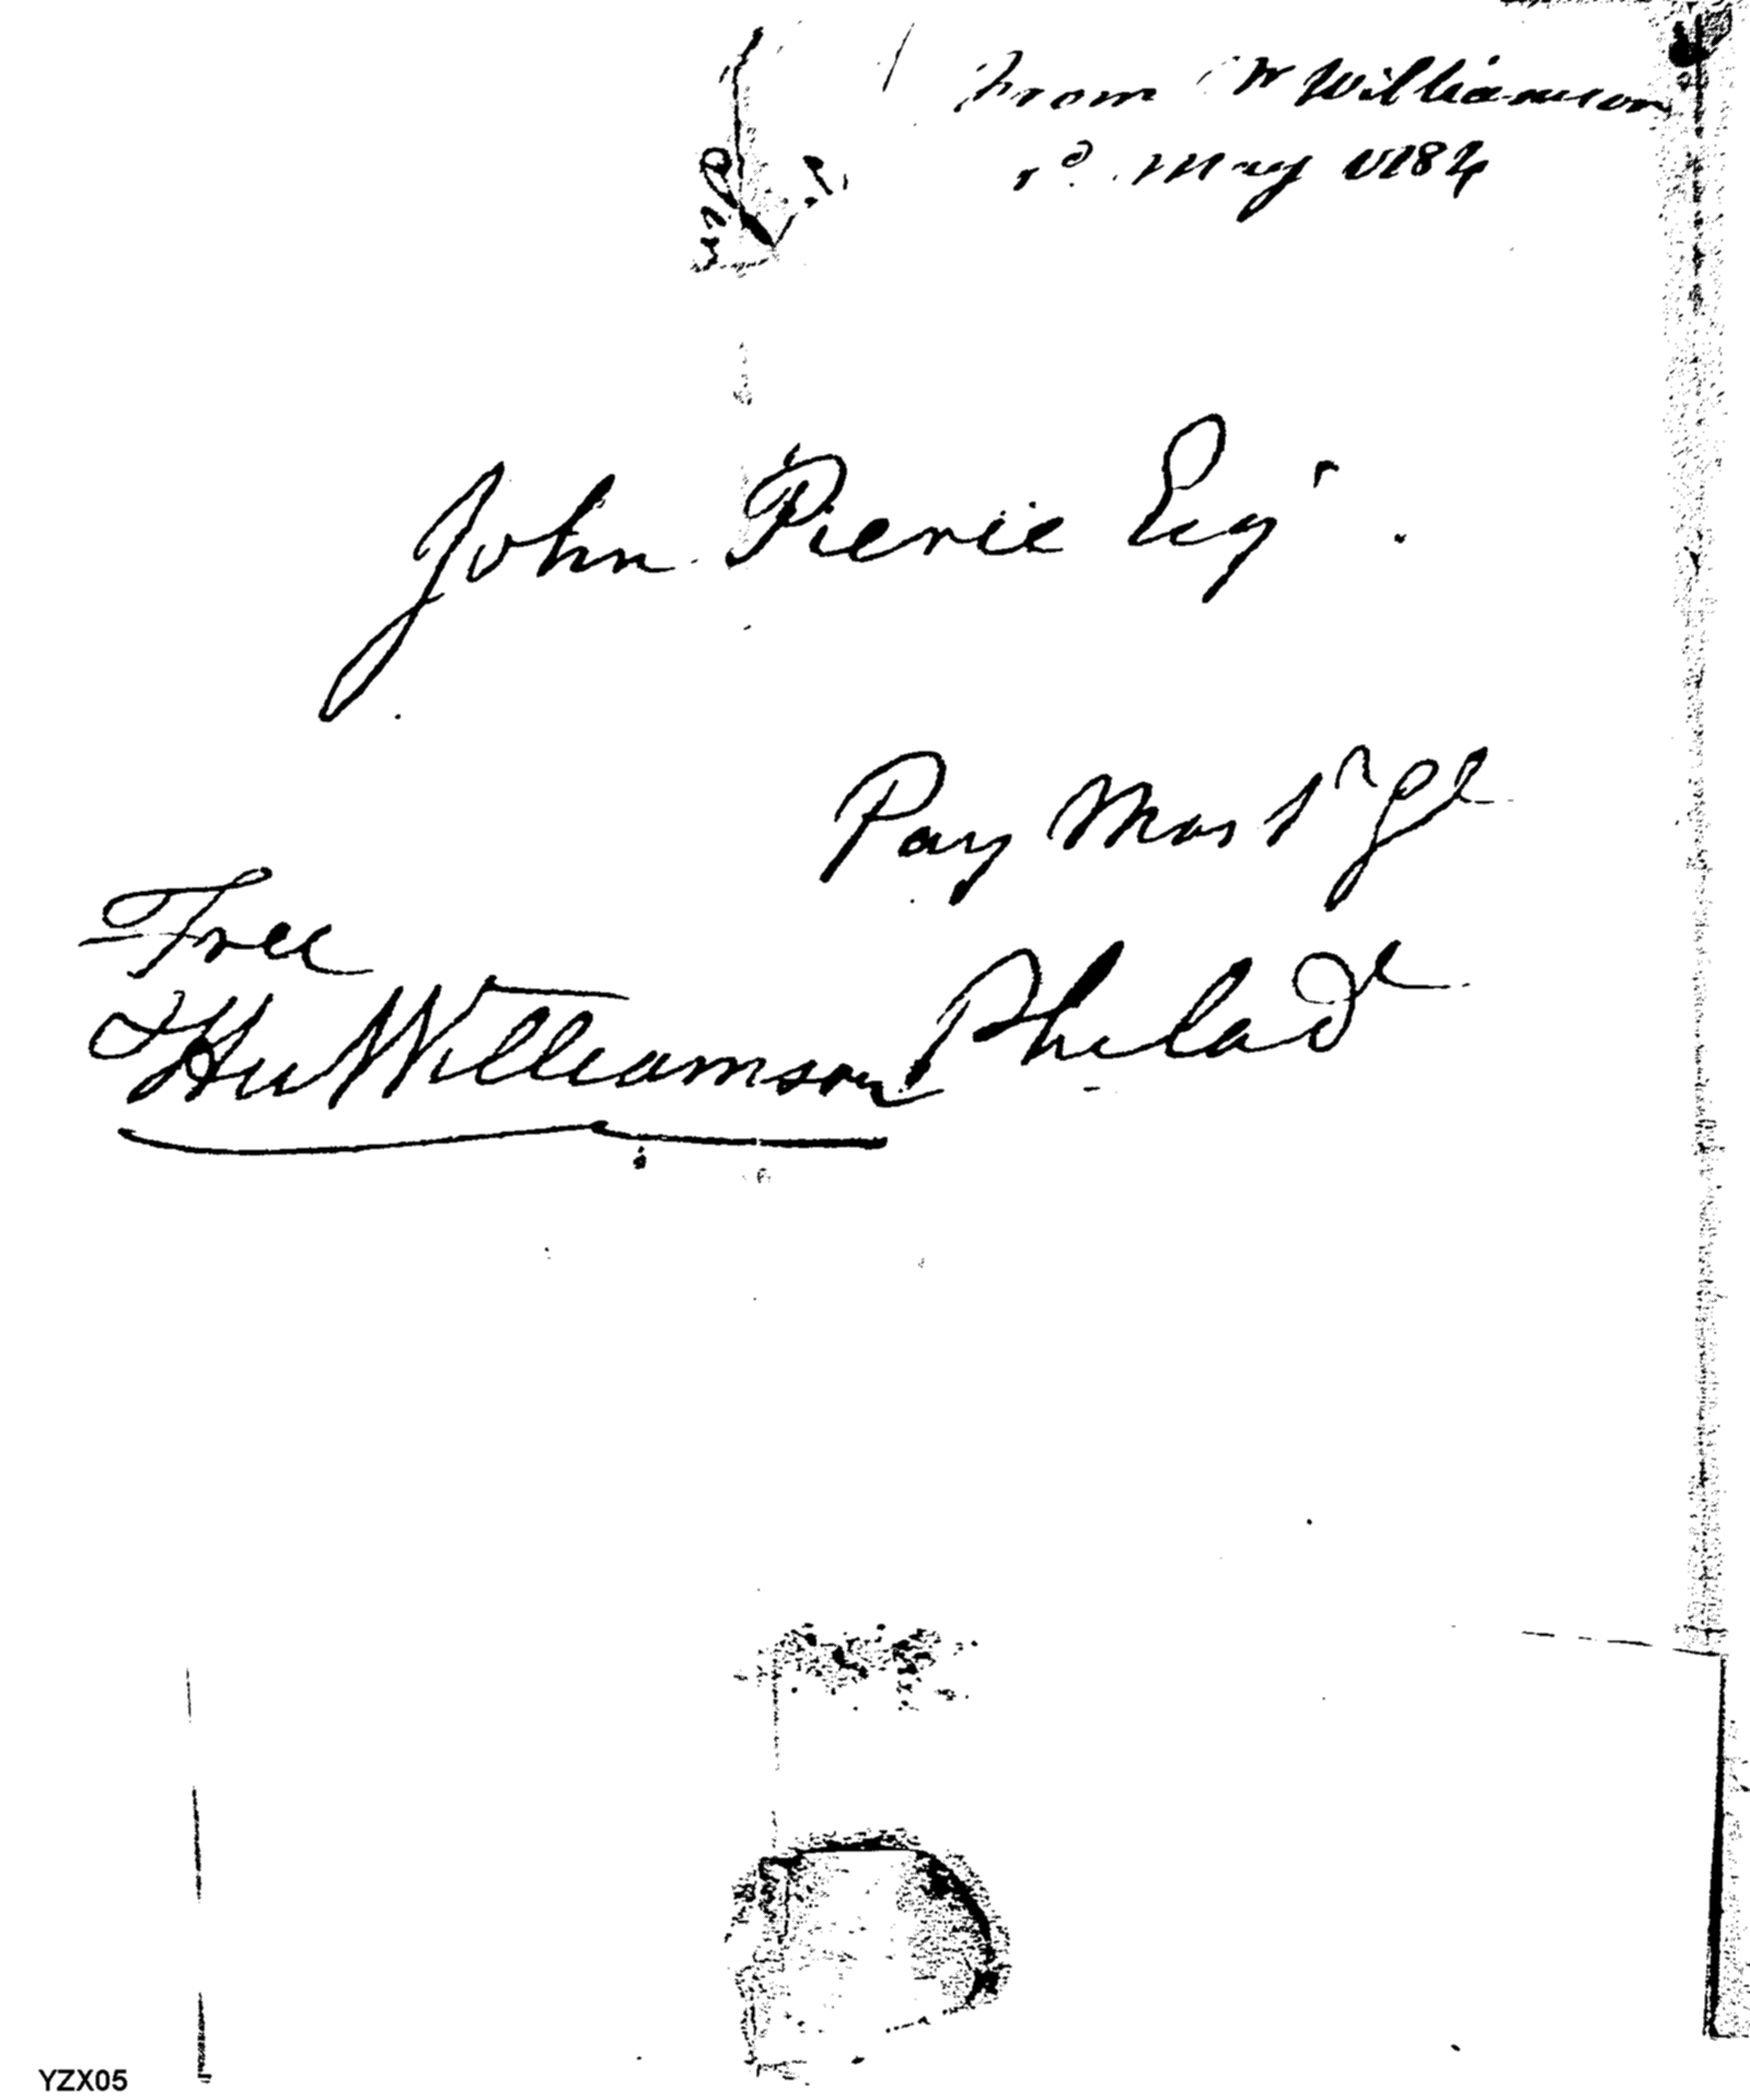 From Mr Williamson
rd. May 1784
John Pierce Esqr.
Pay Mastr Gl
Free
Hu Williamson
Philade
YZX05